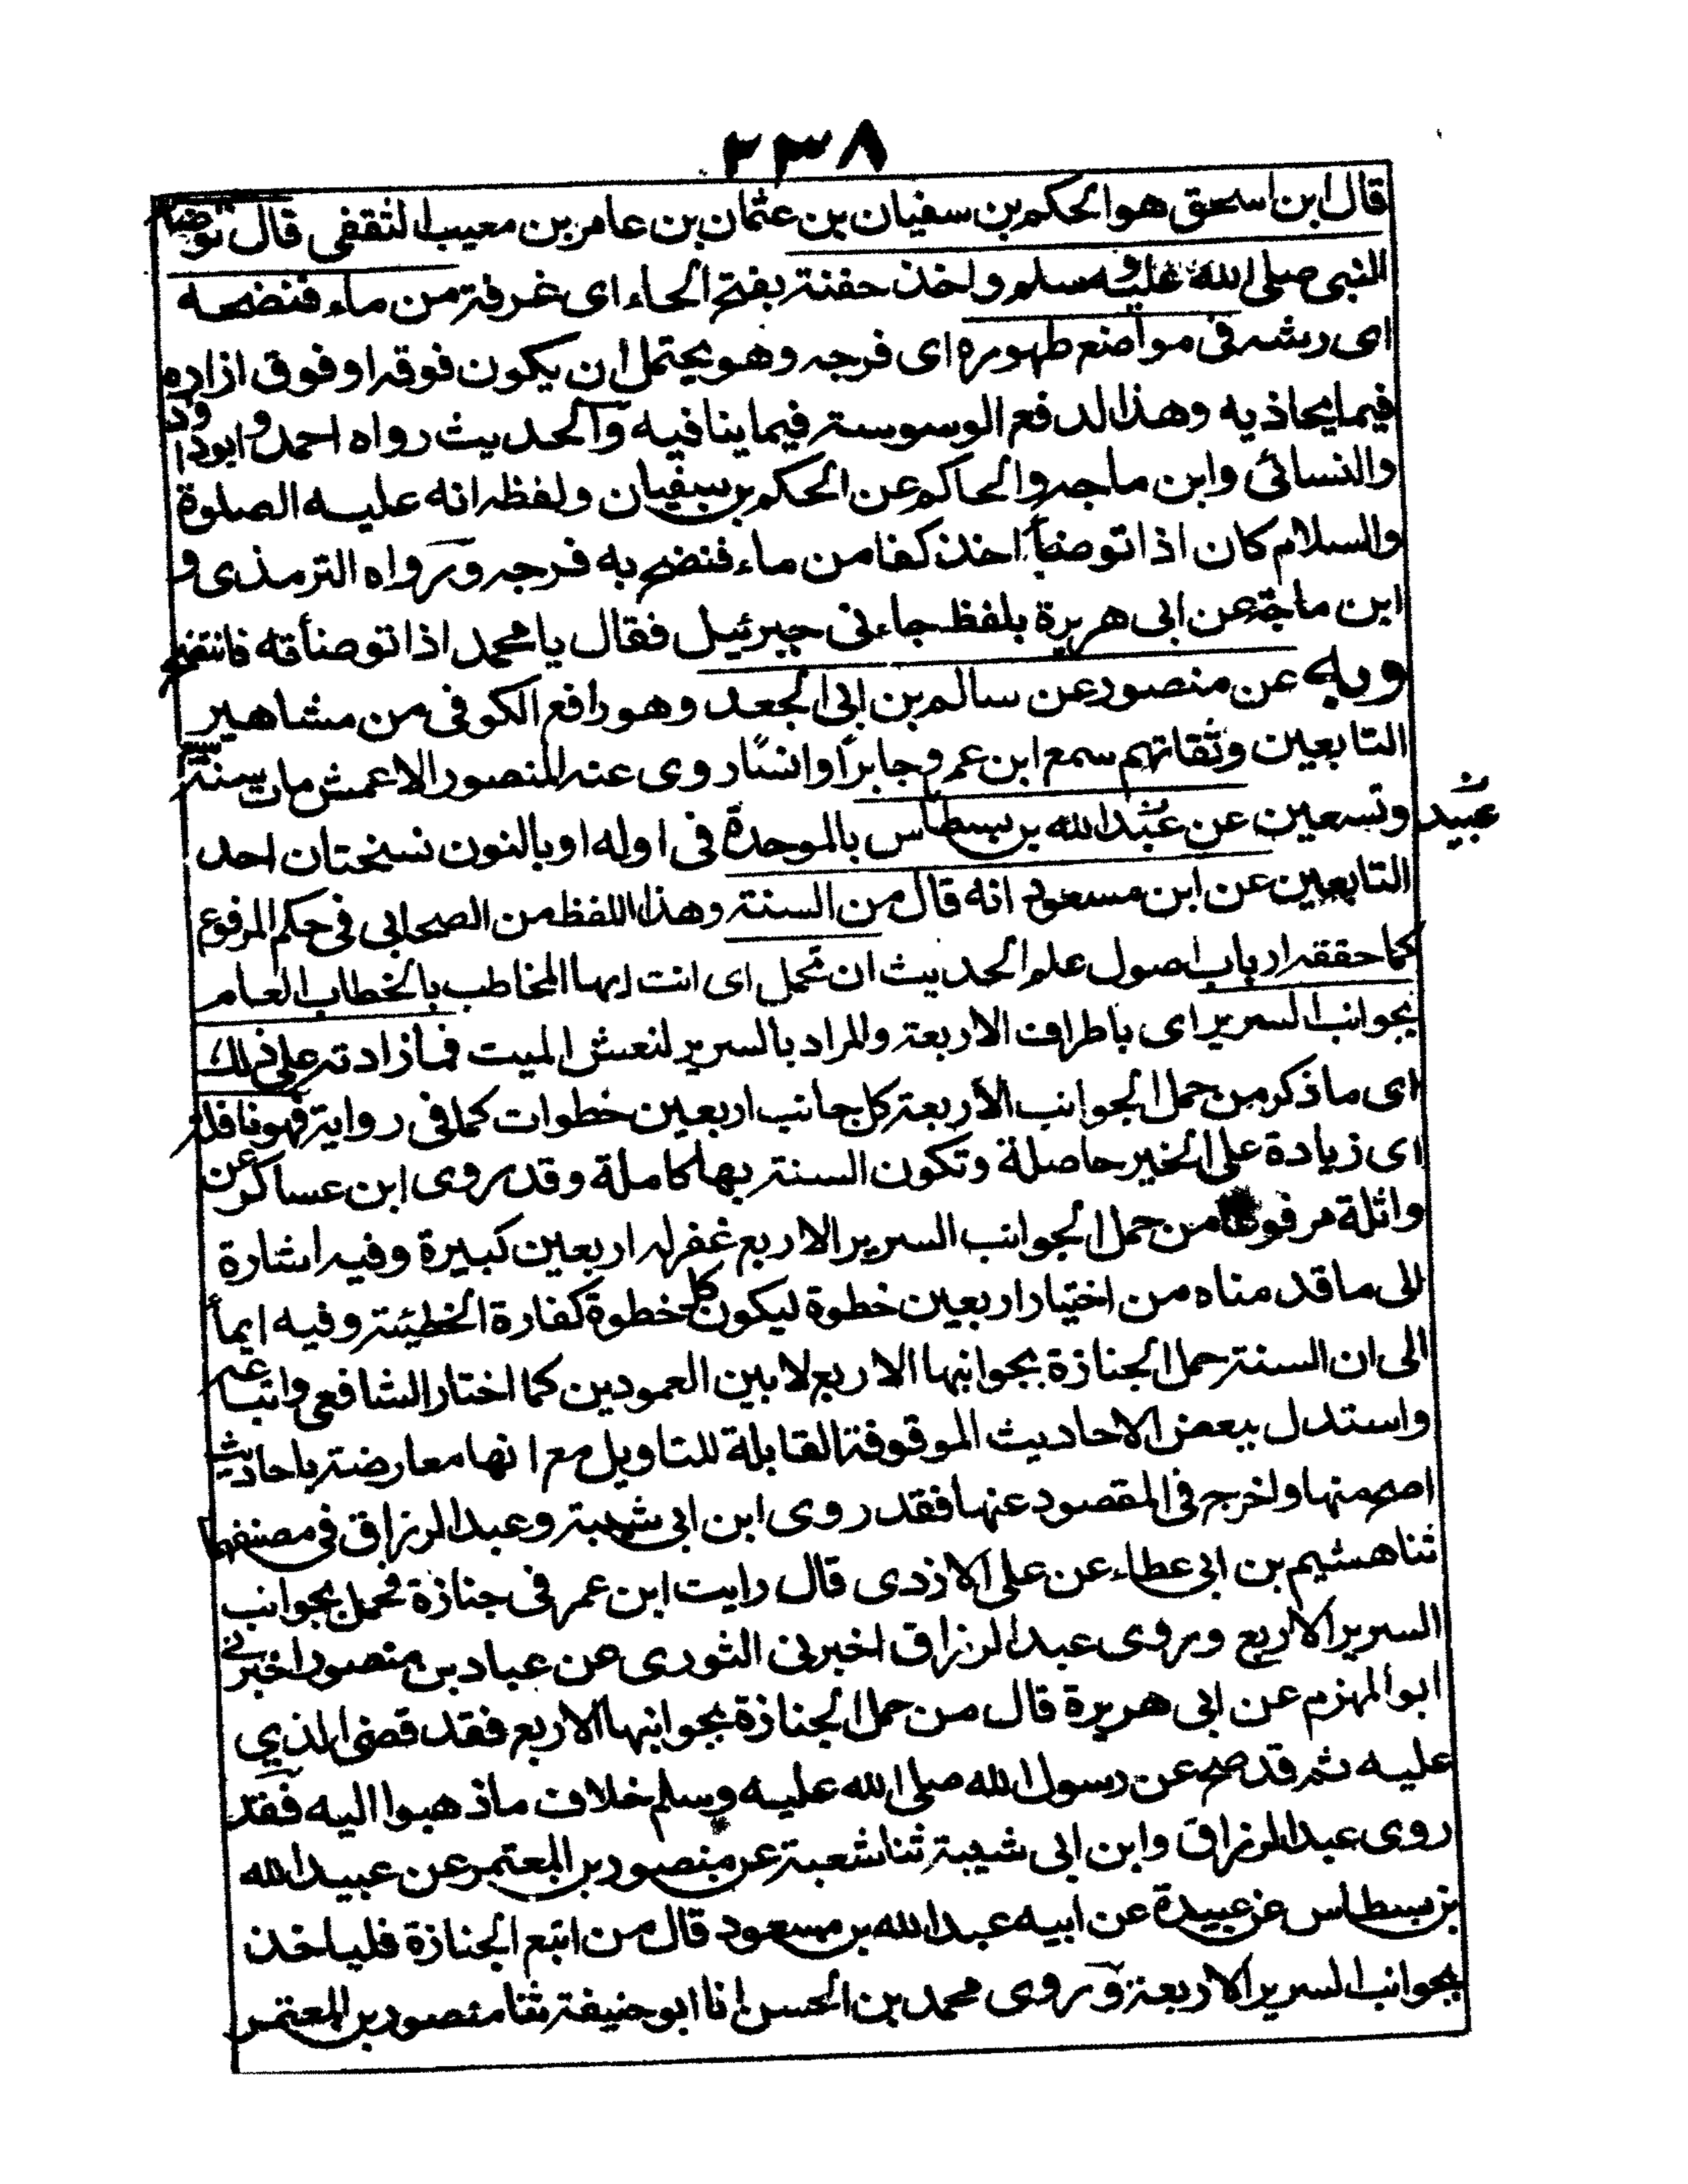 ٢٣٨
قال ابن اسحق هو الحكم بن سفيان بن عثمان بن عامر بن معيب الثقفى قال توضأ
النبى صلى الله عليه وسلم واخذ حفنة بفتح الحاء اى غرفة من ماء فنضحه
اى رشه فى مواضع طهوره اى فرجه وهو يحتمل ان يكون فوقه او فوق ازاره
فيما يحاذيه وهذا لدفع الوسوسة فيما ينافيه والحديث رواه احمد وابو داود
والنسائى وابن ماجه والحاكم عن الحكم بن سفيان ولفظه انه عليه الصلوة
والسلام كان اذا توضأ اخذ كفا من ماء فنضح به فرجه ورواه الترمذى و
ابن ماجة عن ابى هريرة بلفظ جاءنى جبرئيل فقال يا محمد اذا توضأت فانتضح
وبه عن منصور عن سالم بن ابى الجعد وهو رافع الكوفى من مشاهير
التابعين وثقاتهم سمع ابن عمر وجابرا وانسا روى عنه المنصور الاعمش مات سنة سبع
وتسعين عن عبيد الله بن بسطاس بالموحدة فى اوله او بالنون نسختان احد
عبيد
التابعين عن ابن مسعود انه قال من السنة وهذا اللفظ من الصحابى فى حكم المرفوع
كما حققه ارباب اصول علم الحديث ان تحمل اى انت ايها المخاطب بالخطاب العام
بجوانب السرير اى باطراف الاربعة والمراد بالسرير لنعش الميت فما زادته على ذلك
اى ما ذكر من حمل الجوانب الأربعة كل جانب اربعين خطوات كما فى رواية فهو نافلة
اى زيادة على الخير حاصلة وتكون السنة بها كاملة وقد روى ابن عساكر عن
واثلة مرفوعا من حمل الجوانب السرير الاربع غفر له اربعين كبيرة وفيه اشارة
الى ما قدمناه من اختيار اربعين خطوة ليكون كل خطوة كفارة الخطيئة وفيه ايمأ
الى ان السنة حمل الجنازة بجوانبها الاربع لا بين العمودين كما اختار الشافعى واتباعه
واستدل ببعض الاحاديث الموقوفة القابلة للتاويل مع انها معارضة باحاديث
اصح منها واخرج فى المقصود عنها فقد روى ابن ابى شيبة وعبد الرزاق فى مصنفهما
ثنا هشيم بن ابى عطاء عن على الازدى قال رايت ابن عمر فى جنازة فحمل بجوانب
السرير الاربع وروى عبد الرزاق اخبرنى الثورى عن عباد بن منصور اخبرنى
ابو المهزم عن ابى هريرة قال من حمل الجنازة بجوانبها الاربع فقد قضى الذي
عليه ثم قد صح عن رسول الله صلى الله عليه وسلم خلاف ما ذهبوا اليه فقد
روى عبد الرزاق وابن ابى شيبة ثنا شعبة عن منصور بن المعتمر عن عبيد الله
بن بسطاس عن عبيدة عن ابيه عبد الله بن مسعود قال من اتبع الجنازة فلياخذ
بجوانب السرير الاربعة وروى محمد بن الحسن انا ابو حنيفة ثنا منصور بن المعتمر